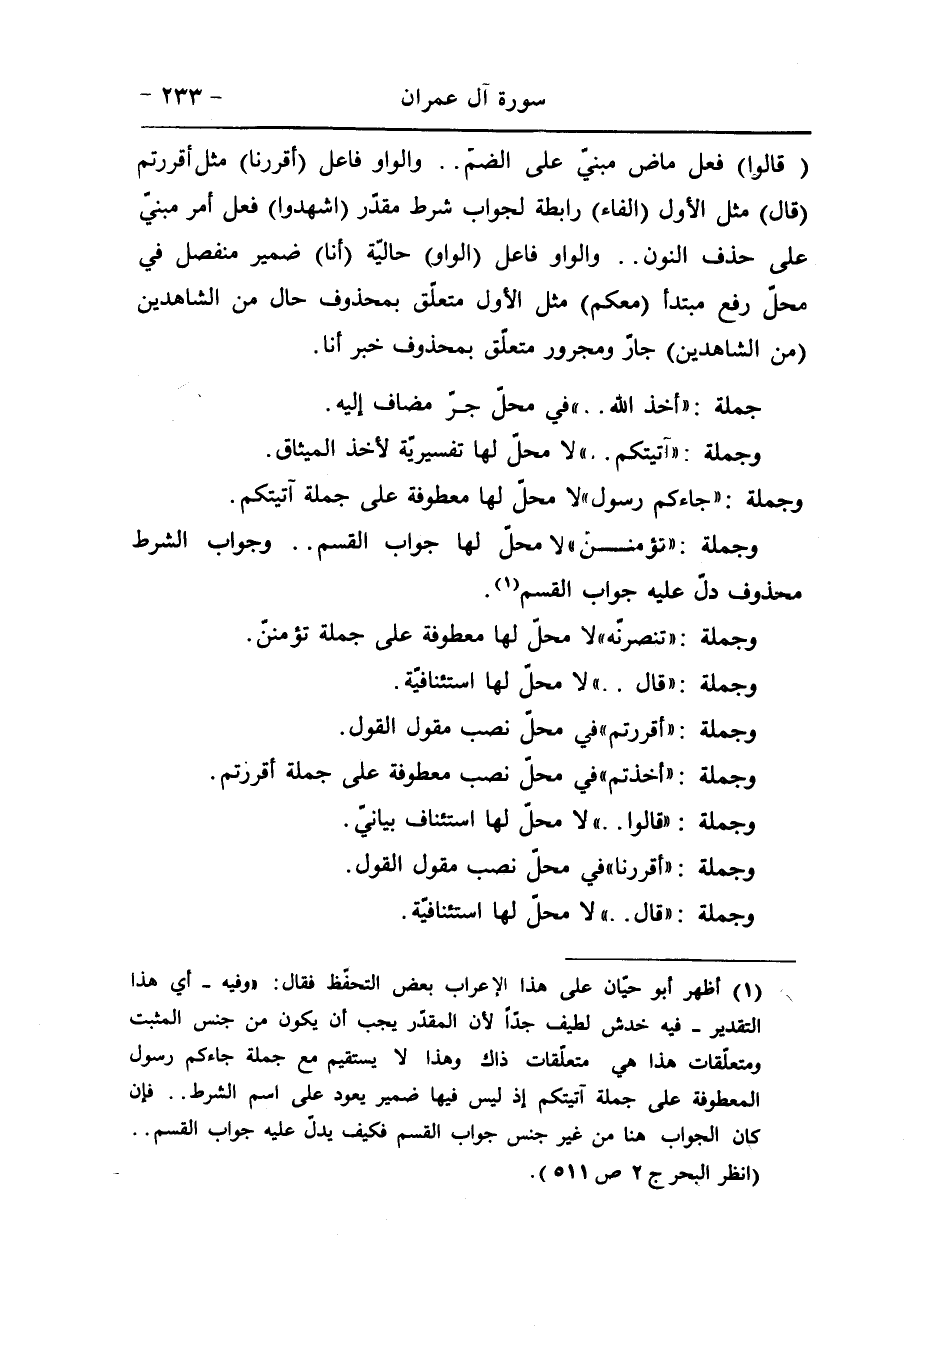 سورة آل عمران - ٢٣٣ -
( قالوا) فعل ماض مبنيّ على الضمّ . . والواو فاعل (أقررنا) مثل أقررتم
(قال) مثل الأول (الفاء) رابطة لجواب شرط مقدّر (اشهدوا) فعل أمر مبنيّ
على حذف النون . . والواو فاعل (الواو) حاليّة (أنا) ضمير منفصل في
محلّ رفع مبتدأ (معكم) مثل الأول متعلّق بمحذوف حال من الشاهدين
(من الشاهدين) جارّ ومجرور متعلّق بمحذوف خبر أنا.
جملة : «أخذ الله . . » في محلّ جـرّ مضاف إليه.
وجملة : «آتيتكم . . » لا محلّ لها تفسيريّة لأخذ الميثاق.
وجملة : «جاءكم رسول» لا محلّ لها معطوفة على جملة آتيتكم.
وجملة : «تؤمنـــنّ» لا محلّ لها جواب القسم . . وجواب الشرط
محذوف دلّ عليه جواب القسم(١).
وجملة : «تنصرنّه» لا محلّ لها معطوفة على جملة تؤمننّ.
وجملة : «قال . . » لا محلّ لها استئنافيّة.
وجملة : «أقررتم» في محلّ نصب مقول القول.
وجملة : «أخذتم» في محلّ نصب معطوفة على جملة أقررتم.
وجملة : «قالوا . . » لا محلّ لها استئناف بيانيّ.
وجملة : «أقررنا» في محلّ نصب مقول القول.
وجملة : «قال . . » لا محلّ لها استئنافيّة.
(١) أظهر أبو حيّان على هذا الإعراب بعض التحفّظ فقال: «وفيه ـ أي هذا
التقدير ـ فيه خدش لطيف جدّاً لأن المقدّر يجب أن يكون من جنس المثبت
ومتعلّقات هذا هي متعلّقات ذاك وهذا لا يستقيم مع جملة جاءكم رسول
المعطوفة على جملة آتيتكم إذ ليس فيها ضمير يعود على اسم الشرط . . فإن
كان الجواب هنا من غير جنس جواب القسم فكيف يدلّ عليه جواب القسم . .
(انظر البحر ج ٢ ص ٥١١).